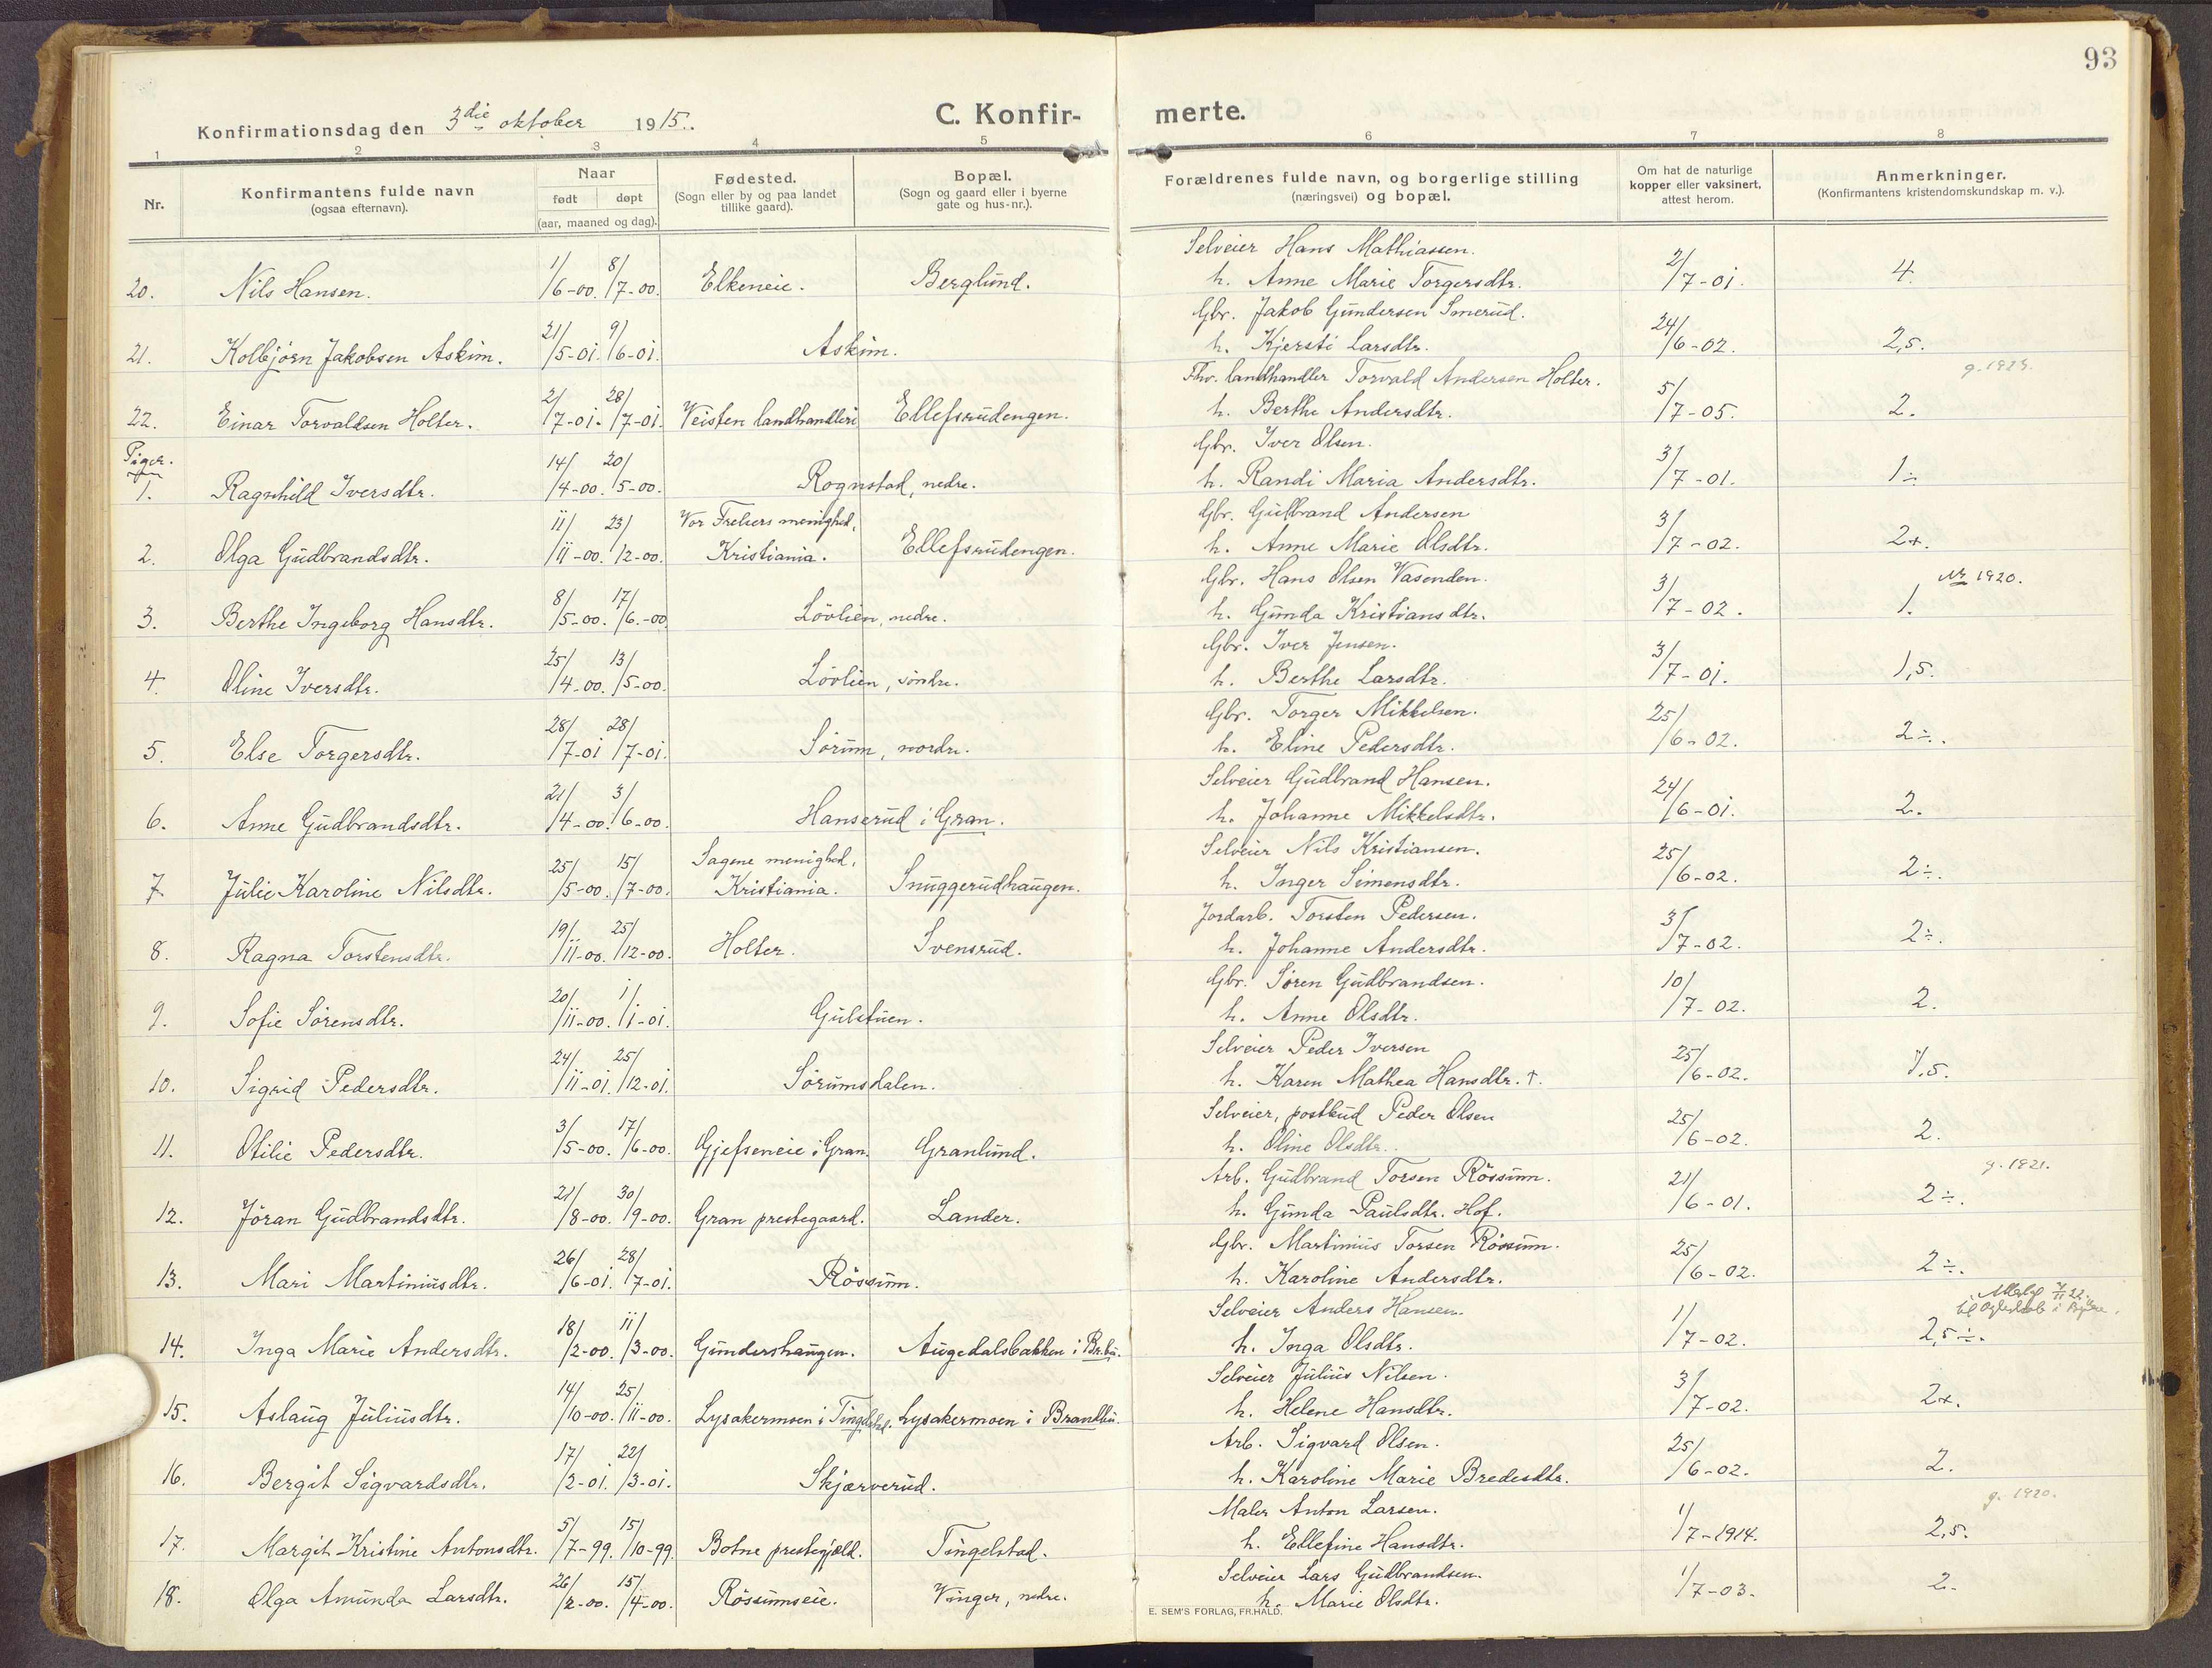 93
Konfirmationsdag den 3die oktober 1915.
C. Konfir-merte.
1 2 3 4 5 6 7 8
Nr.
Konfirmantens fulde navn
(ogsaa efternavn).
Naar
født døpt
(aar, maaned og dag).
Fødested.
(Sogn eller by og paa landet
tillike gaard).
Bopæl.
(Sogn og gaard eller i byerne
gate og hus-nr.).
Forældrenes fulde navn, og borgerlige stilling
(næringsvei) og bopæl.
Om hat de naturlige
kopper eller vaksinert,
attest herom.
Anmerkninger.
(Konfirmantens kristendomskundskap m. v.).
Selveier Hans Mathiassen.
20. Nils Hansen. 1/6-00. 8/7-00. Elkeneie. Berglund. h. Anne Marie Torgersdtr. 2/7-01. 4.
Gbr. Jakob Gundersen Smerud.
21. Kolbjørn Jakobsen Askim. 21/5-01. 9/6-01. Askim. h. Kjersti Larsdtr. 24/6-02. 2,5.
g. 1925.
Fhv. landhandler Torvald Andersen Holter.
22. Einar Torvaldsen Holter. 2/7-01. 28/7-01. Veisten landhandleri Ellefsrudengen. h. Berthe Andersdtr. 5/7-05. 2.
Piger.
Gbr. Iver Olsen.
1. Ragnhild Iversdtr. 14/4-00. 20/5-00. Rognstad, nedre. h. Randi Maria Andersdtr. 3/7-01. 1÷
Vor Frelsers menighed, Gbr. Gulbrand Andersen
2. Olga Gudbrandsdtr. 11/11-00. 23/12-00. Kristiania. Ellefsrudengen. h. Anne Marie Olsdtr. 3/7-02. 2+.
Gbr. Hans Olsen Vasenden. 1920.
3. Berthe Ingeborg Hansdtr. 8/5-00. 17/6-00 Lövlien, nedre. h. Gunda Kristiansdtr. 3/7-02. 1.
Gbr. Iver Jensen.
4. Oline Iversdtr. 25/4-00. 13/5-00. Lövlien, søndre. h. Berthe Larsdtr. 3/7-01. 1,5.
Gbr. Torger Mikkelsen.
5. Else Torgersdtr. 28/7-01 28/7-01. Sørum, nordre. h. Eline Pedersdtr. 25/6-02. 2÷.
Selveier Gudbrand Hansen.
6. Anne Gudbrandsdtr. 21/4-00. 3/6-00. Hanserud i Gran. h. Johanne Mikkelsdtr. 24/6-01. 2.
Sagene menighed, Selveier Nils Kristiansen.
7. Julie Karoline Nilsdtr. 25/5-00. 15/7-00. Kristiania. Snuggerudhaugen. h. Inger Simensdtr. 25/6-02. 2÷.
Jordarb. Torsten Pedersen.
8. Ragna Torstensdtr. 19/11-00. 25/12-00. Holter. Svensrud. h. Johanne Andersdtr. 3/7-02. 2÷.
Gbr. Søren Gudbrandsen.
9. Sofie Sørensdtr. 20/11-00. 1/1-01. Gulstuen. h. Anne Olsdtr. 10/7-02. 2.
Selveier Peder Iversen
10. Sigrid Pedersdtr. 24/11-01. 25/12-01. Sørumsdalen. h. Karen Mathea Hansdtr. †. 25/6-02. 1,5.
Selveier, postbud Peder Olsen
11. Otilie Pedersdtr. 3/5-00. 17/6-00. Gjefseneie i Gran. Granlund. h. Oline Olsdtr. 25/6-02. 2.
g. 1921.
Arb. Gudbrand Torsen Røssum.
12. Jøran Gudbrandsdtr. 21/8-00. 30/9-00. Gran prestegaard. Lander. h. Gunda Paulsdtr. Hof. 21/6-01. 2÷.
Gbr. Martinius Torsen Røssum.
13. Mari Martiniusdtr. 26/6-01. 28/7-01. Røssum. h. Karoline Andersdtr. 25/6-02. 2÷.
Selveier Anders Hansen.
14. Inga Marie Andersdtr. 18/2-00. 11/3-00. Gundershaugen. Augedalsbakken i Br.bu. h. Inga Olsdtr. 1/7-02. 2,5÷.
Selveier Julius Nilsen.
15. Aslaug Juliusdtr. 14/10-00. 25/11-00. Lysakermoen i Tingelstad. Lysakermoen i Brandbu. h. Helene Hansdtr. 3/7-02. 2+.
Arb. Sigvard Olsen.
16. Bergit Sigvardsdtr. 17/2-01. 22/3-01. Skjærverud. h. Karoline Marie Bredesdtr. 25/6-02. 2.
g. 1920.
Maler Anton Larsen.
17. Margit Kristine Antonsdtr. 5/7-99. 15/10-99. Botne prestegjæld. Tingelstad. h. Ellefine Hansdtr. 1/7-1914. 2,5.
Selveier Lars Gudbrandsen.
18. Olga Amunda Larsdtr. 26/2-00. 15/4-00. Røssumseie. Vinger, nedre. h. Marie Olsdtr. 1/7-03. 2.
E. SEM'S FORLAG, FR.HALD.